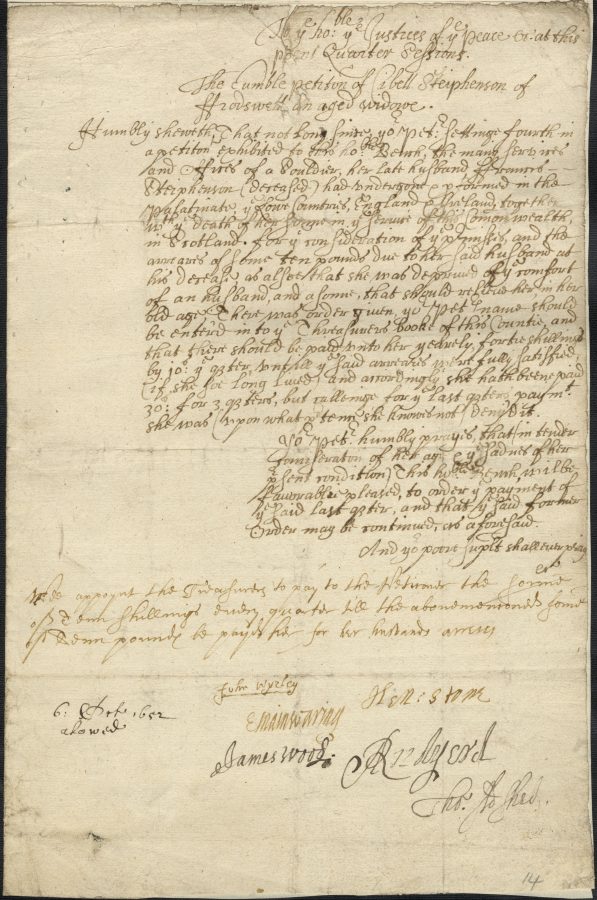 To ye ho:ble ye Justices of ye Peace &c: at this
pnt Quarter Sessions.
The humble petition of Cibell Steiphenson of
ffrodswell an aged widowe.
Humbly sheweth, That not long since, yor Petr: settinge fourth in
a petition exhibited to this hoble Bench, the many services
and offices of a Souldier, her late husband ffrances
Steiphenson (deceased) had undergone & pformed in the
Palatinate, ye Lowe Countries, England & Ireland, together
wth ye death of her sonne in ye service of this Comon wealth,
in Scotland. for ye consideration of ye pmisss, and the
arreares of some ten pounds due to her said husband at
his decease as alsoe that she was deprived of ye comfort
of an husband, and a sonne, that should releeve her in her
old age, There was order given, yor Petrs name should
be entered in to ye Threasurers booke of this Countie, and
that there should be paid unto her yearely, fortie shillings
by 10s: ye qrter, untill ye said arreares were fully satisfied,
(if she soe long lived) and accordingly she hath beene paid
30s: for 3 qrters, but callinge for ye last qrters paymt:
she was (upon what ptence she knowes not) deny'd it.
Yor Petr: humbly prayes, that (in tender
Consideraton of her age & ye sadnes of her
psent condition) This hoble Bench, will be
favorablie pleased, to order ye payment of
ye said last qrter, and that ye said former
Order may be continued, as aforesaid.
And yor poore suplt shall ever pray
Wee appoynt the Treasurers to pay to the Petitioner the some
of Tenn shillings every quarter till the abovementioned some
of Tenn pounds be payd her for her husbands arreres
6: Octo: 1652
alowed
John Wyrley
E Mainwaring
James Wood:
Hen: Stone
Rudyerd
Tho:
14